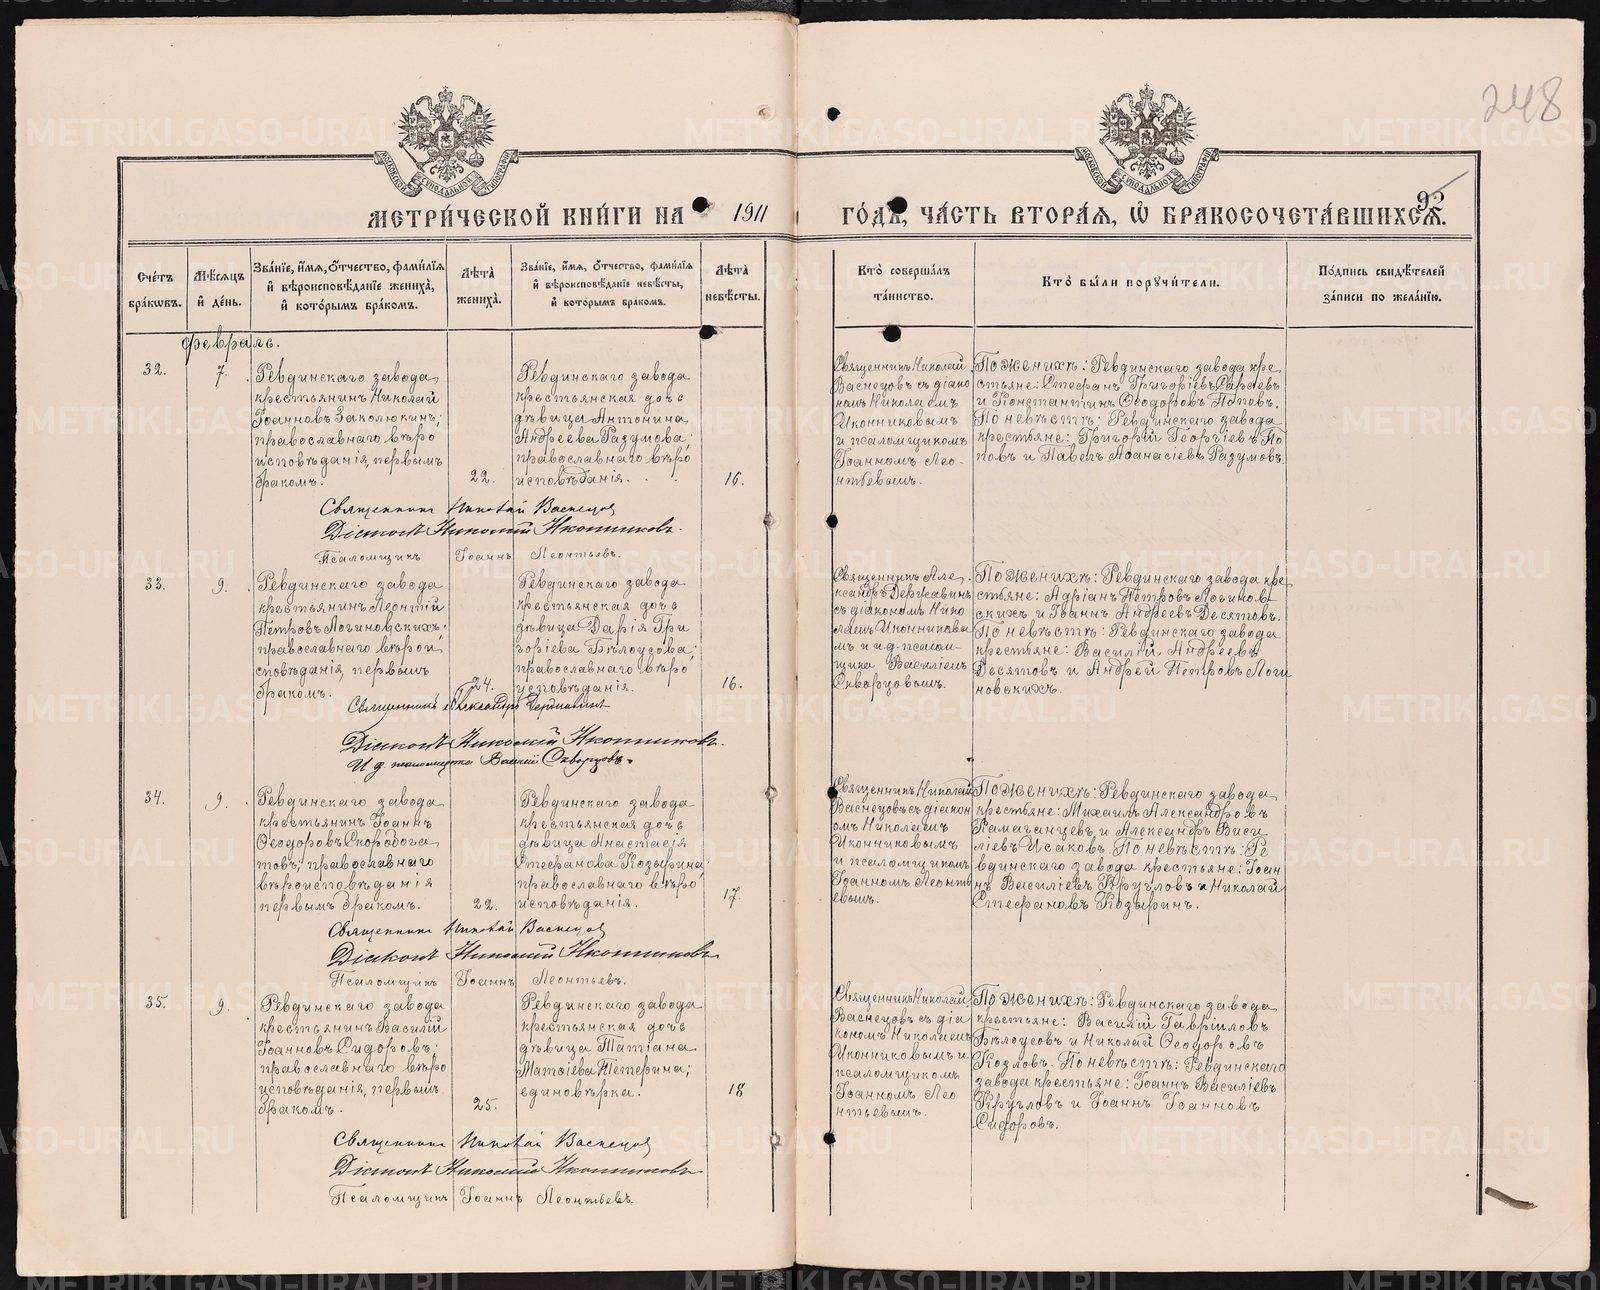 248
92
МОСКОВСКОЙ СѴНОДАЛЬНОЙ ТИПОГРАФІИ
МОСКОВСКОЙ СѴНОДАЛЬНОЙ ТИПОГРАФІИ
МЕТРИ́ЧЕСКОЙ КНИ́ГИ НА 1911 ГО́ДЪ, ЧА́СТЬ ВТОРА́Я, Ѡ БРАКОСОЧЕТА́ВШИХСЯ.
Сче́тъ бра́кѡвъ.
Мѣ́сяцъ и де́нь.
Зва́нїе, и́мя, ѻ́тчество, фами́лїя и вѣроисповѣ́данїе жениха̀, и кото́рымъ бра́комъ.
Лѣ́та жениха̀.
Зва́нїе, и́мя, ѻ́тчество, фами́лїя и вѣроисповѣ́данїе невѣ́сты, и кото́рымъ бра́комъ.
Лѣ́та невѣ́сты.
Кто̀ соверша́лъ та́инство.
Кто̀ бы́ли порꙋчи́тели.
По́дпись свидѣ́телей за́писи по жела́нїю.
Февраль.
32.
7.
Ревдинскаго завода
крестьянинъ Николай
Іоанновъ Заколюкинъ;
православнаго вѣро
исповѣданія, первымъ
бракомъ.
22.
Ревдинскаго завода
крестьянская дочь
дѣвица Антонина
Андреева Разумова;
православнаго вѣро
исповѣданія.
16.
Священникъ Николай
Васнецовъ съ діако
номъ Николаемъ
Иконниковымъ
и псаломщикомъ
Іоанномъ Лео-
нтьевымъ.
По женихѣ: Ревдинскаго завода кре
стьяне: Стефанъ Григоріевъ Сараевъ
и Константинъ Ѳеодоровъ Поповъ.
По невѣстѣ: Ревдинскаго завода
крестьяне: Григорій Георгіевъ По
повъ и Павелъ Аѳанасіевъ Разумовъ.
Священникъ Николай Васнецов
Діаконъ Николай Иконниковъ.
Псаломщикъ Іоаннъ Леонтьевъ.
33.
9.
Ревдинскаго завода
крестьянинъ Леонтій
Петровъ Логиновскихъ;
православнаго вѣрои
сповѣданія, первымъ
бракомъ.
24.
Ревдинскаго завода
крестьянская дочь
дѣвица Дарія Гри
горіева Бѣлоусова;
православнаго вѣро
исповѣданія.
16.
Священникъ Але
ксандръ Державинъ
съ діакономъ Нико
лаемъ Иконниковы
мъ и и.д. псалом-
щика Василіемъ
Скворцовымъ.
По женихѣ: Ревдинскаго завода кре
стьяне: Адріанъ Петровъ Логинов
скихъ и Іоаннъ Андреевъ Десятовъ.
По невѣстѣ: Ревдинскаго завода
крестьяне: Василій Андреевъ
Десятовъ и Андрей Петровъ Логи
новскихъ.
Священникъ Александръ Державинъ
Діаконъ Николай Иконниковъ.
И д. псаломщика Василій Скворцовъ.
34.
9.
Ревдинскаго завода
крестьянинъ Іоаннъ
Ѳеодоровъ Скоробога
товъ; православнаго
вѣроисповѣданія
первымъ бракомъ.
22.
Ревдинскаго завода
крестьянская дочь
дѣвица Анастасія
Стефанова Козырина;
православнаго вѣро
исповѣданія.
17.
Священникъ Николай
Васнецовъ съ діакон
омъ Николаемъ
Иконниковымъ
и псаломщикомъ
Іоанномъ Леонть
евымъ.
По женихѣ: Ревдинскаго завода
крестьяне: Михаилъ Александровъ
Камаганцевъ и Александръ Васи
ліевъ Исаковъ. По невѣстѣ: Ре
вдинскаго завода крестьяне: Іоан
нъ Василіевъ Кругловъ и Николай
Стефановъ Козыринъ.
Священникъ Николай Васнецов
Діаконъ Николай Иконниковъ
Псаломщикъ Іоаннъ Леонтьевъ.
35.
9.
Ревдинскаго завода
крестьянинъ Василій
Іоанновъ Сидоровъ;
православнаго вѣро
исповѣданія, первымъ
бракомъ.
25.
Ревдинскаго завода
крестьянская дочь
дѣвица Татіана
Матѳіева Тетерина;
единовѣрка.
18
Священникъ Николай
Васнецовъ съ діа
кономъ Николаемъ
Иконниковымъ и
псаломщикомъ
Іоанномъ Лео
нтьевымъ.
По женихѣ: Ревдинскаго завода
крестьяне: Василій Гавріиловъ
Бѣлоусовъ и Николай Ѳеодоровъ
Козловъ. По невѣстѣ: Ревдинскаго
завода крестьяне: Іоаннъ Василіевъ
Кругловъ и Іоаннъ Іоанновъ
Сидоровъ.
Священникъ Николай Васнецов
Діаконъ Николай Иконниковъ
Псаломщикъ Іоаннъ Леонтьевъ.
METRIKI.GASO-URAL.RU